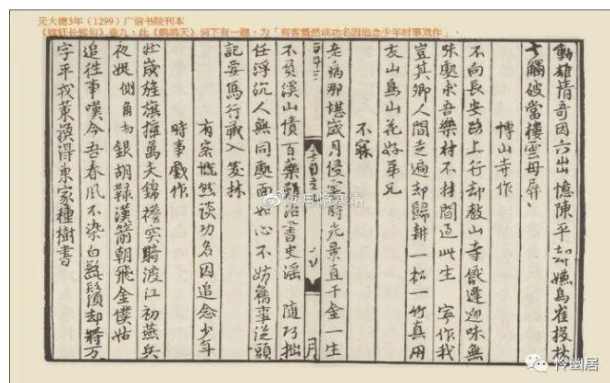 元大德3年（1299）广信书院刊本
《稼轩长短句》卷九，此《鹧鸪天》词下有一题，为「有客慨然谈功名因追念少年时事戏作」。
動雄情奇因六出憶陳平 却嫌鳥雀投林
去觸破當樓雲母屏
博山寺作
不向長安路上行却教山寺厭逢迎味無
味處求吾樂材不材間過此生 寧作我
豈其卿人間走遍却歸耕一松一竹真朋
友山鳥山花好弟兄
不寐
老病那堪歲月侵霎時光景直千金一生
不負溪山債百藥難治書史淫 隨巧拙
任浮沉人無同處面如心不妨舊事從頭
記要寫行藏入笑林
有客慨然談功名因追念少年
時事戲作
壯歲旌旗擁萬夫錦襜突騎渡江初燕兵
夜娖側角切銀胡䩮漢箭朝飛金僕姑
追往事嘆今吾春風不染白髭鬚却將万
字平戎策換得東家種樹書
幽居